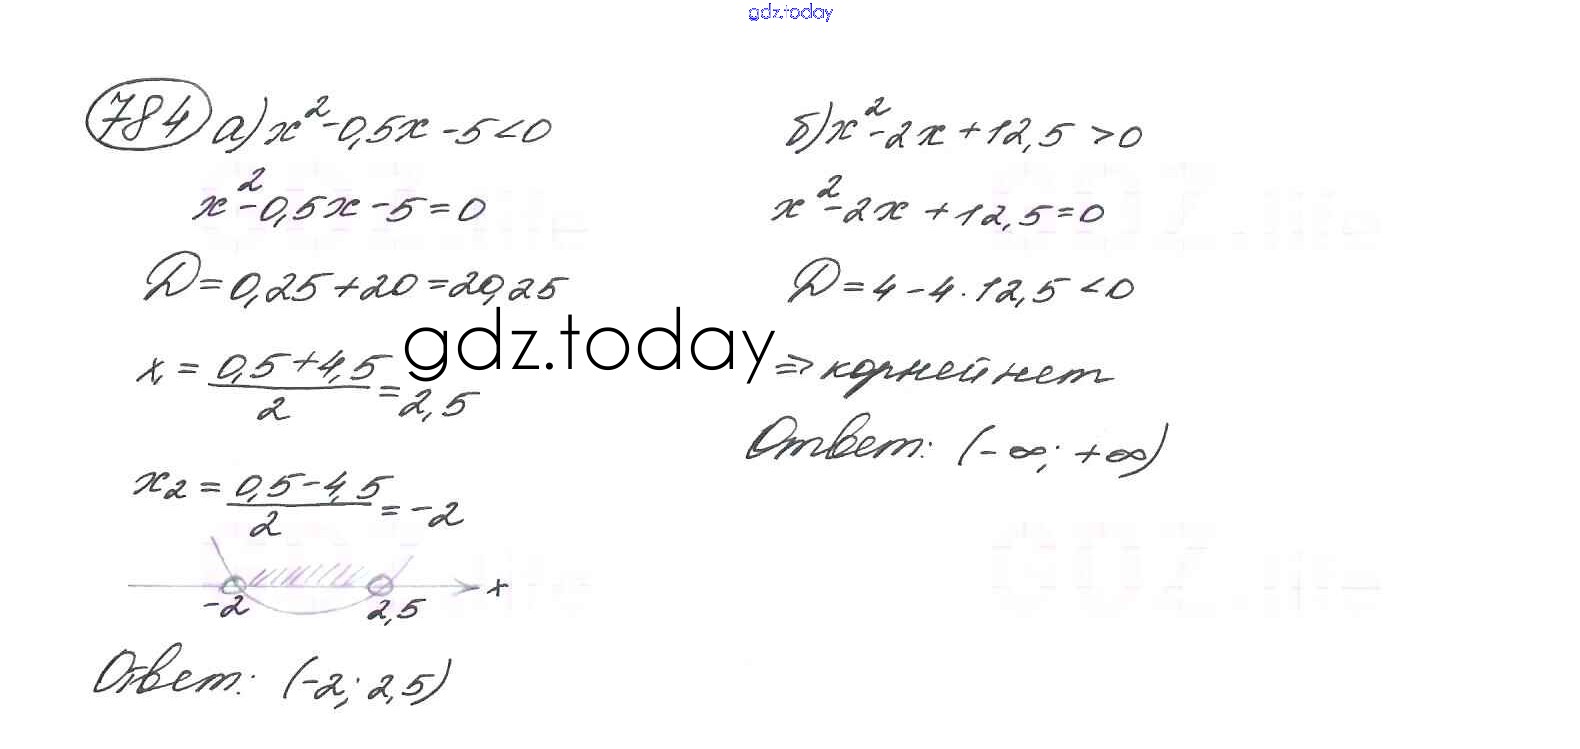 gdz.today
784 а) x² - 0,5x - 5 < 0
x² - 0,5x - 5 = 0
D = 0,25 + 20 = 20,25
x₁ = (0,5 + 4,5)/2 = 2,5
x₂ = (0,5 - 4,5)/2 = -2
-2 2,5 x
Ответ: (-2; 2,5)
б) x² - 2x + 12,5 > 0
x² - 2x + 12,5 = 0
D = 4 - 4 · 12,5 < 0
⇒ корней нет
Ответ: (-∞; +∞)
gdz.today
GDZ.life
GDZ.life
GDZ.life
GDZ.life